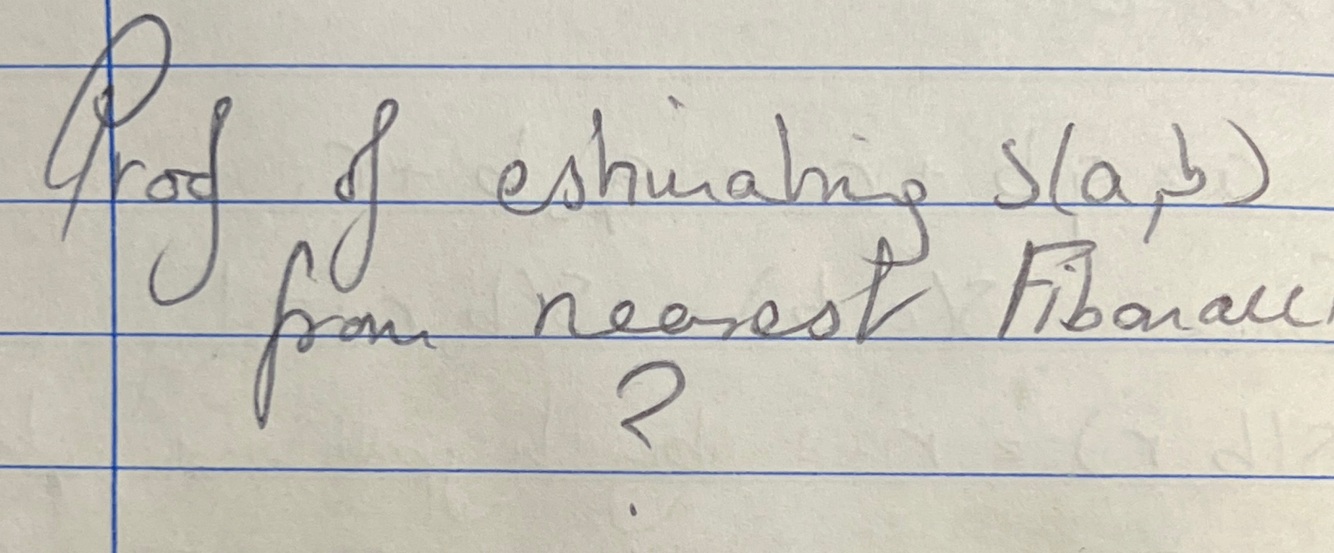 Proof of estimating S(a,b)
from nearest Fibonacci
?